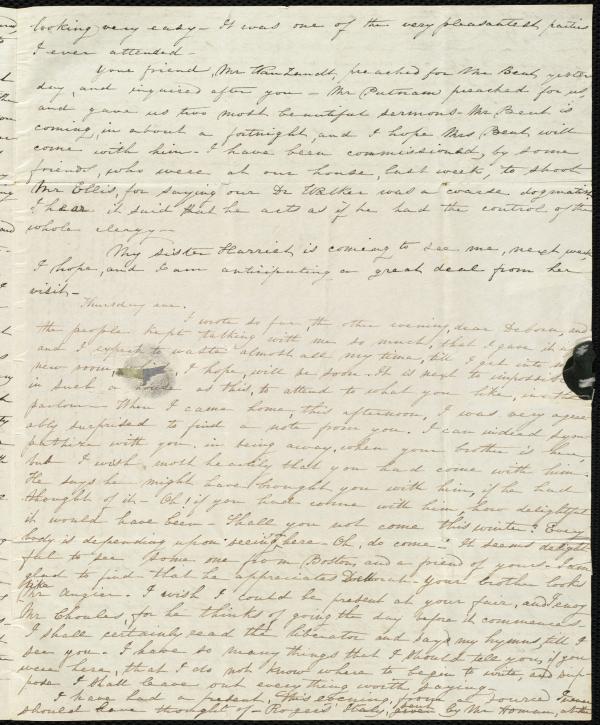 looking very easy - It was one of the very pleasantest parties
I ever attended -
Your friend, Mr Van Zandt, preached for Mr Bent, yester
day, and inquired after you - Mr Putnam preached for us,
and gave us two most beautiful sermons - Mr Bent is
coming, in about a fortnight, and I hope Mrs Bent will
come with him - I have been commissioned, by some
friends, who were at our house, last week, to shoot
Mr Ellis, for saying our Dr Walker was a "coarse dogmatist"
I hear it said that he acts as if he had the control of the
whole clergy -
My sister Harriet, is coming to see me, next week
I hope, and I am anticipating a great deal from her
visit -
Thursday eve.
I wrote so far, the other evening, dear Debora, and
the people kept talking with me so much, that I gave it up
and I expect to waste almost all my time, till I get into
new room, I hope, will be soon - It is next to impossible
in such a as this, to attend to what you like, in the
parlour - When I came home, this afternoon, I was very agree
ably surprised to find a note from you. I can indeed sym
pathize with you, in being away, when your brother is here,
but I wish most heartily that you had come with him -
He says he might have brought you with him, if he had
thought of it - Oh! if you had come with him, how delightful
it would have been - Shall you not come this winter? Every
body is depending upon seeing here - Oh, do come - It seems delight
ful to see some one from Boston, and a friend of yours - I am
glad to find that he appreciates - Your brother looks
like Mr Angier. I wish I could be present at your fair, and I envy
Mr Choules, for he thinks of going the day before it commences -
I shall certainly read the liberator and my hymns, till I
see you - I have so many things that I should tell you, if you
were here, that I do not know where to begin to write, and sup-
pose I shall leave out every thing worth saying -
I have had a present, this evening, from a source I never
should have thought of Rogers' Italy, given by Mr Homan, at the